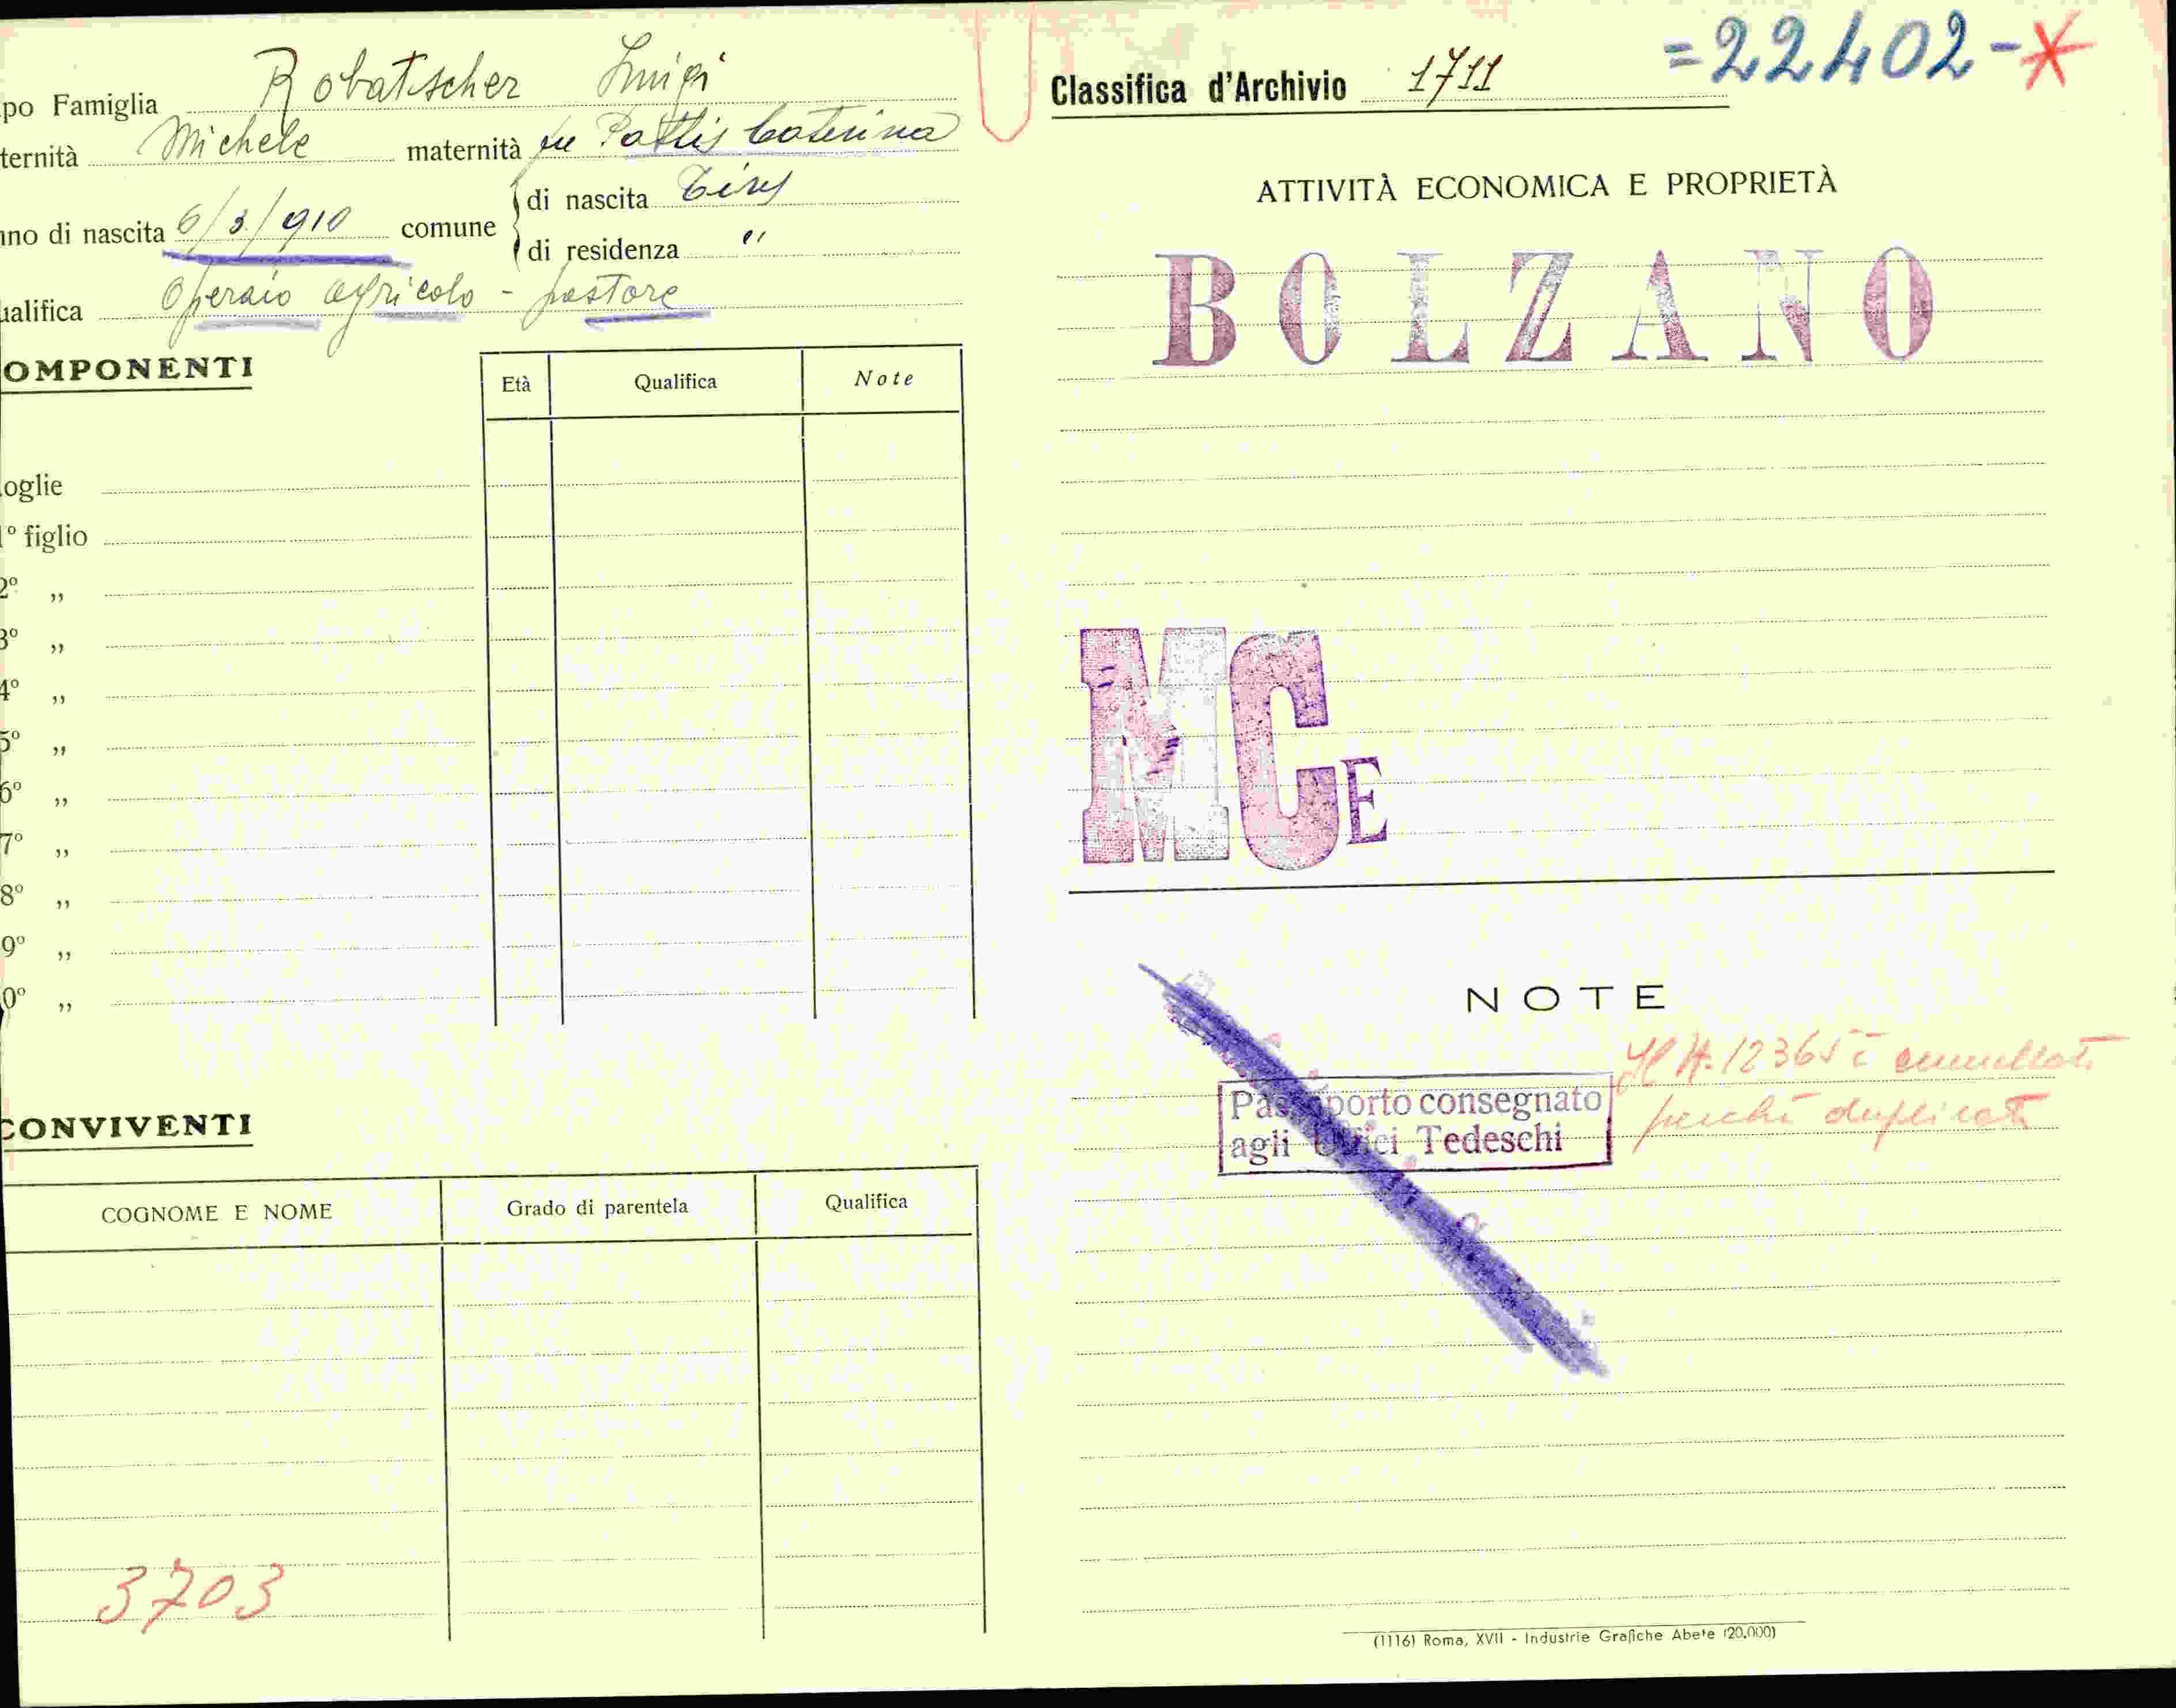 po Famiglia Robatscher Luigi
ternità Michele maternità fu Pattis Caterina
nno di nascita 6/3/910 comune di nascita Tires
di residenza "
ualifica Operaio agricolo - pastore
OMPONENTI
Età Qualifica Note
oglie
1º figlio
2º „
3º „
4º „
5º „
6º „
7º „
8º „
9º „
0º „
CONVIVENTI
COGNOME E NOME Grado di parentela Qualifica
3703
=22402-*
Classifica d'Archivio 1711
ATTIVITÀ ECONOMICA E PROPRIETÀ
BOLZANO
MCE
NOTE
Il N. 12365 è annullato
perché duplicato
Passaporto consegnato
agli Uffici Tedeschi
(1116) Roma, XVII - Industrie Grafiche Abete (20.000)